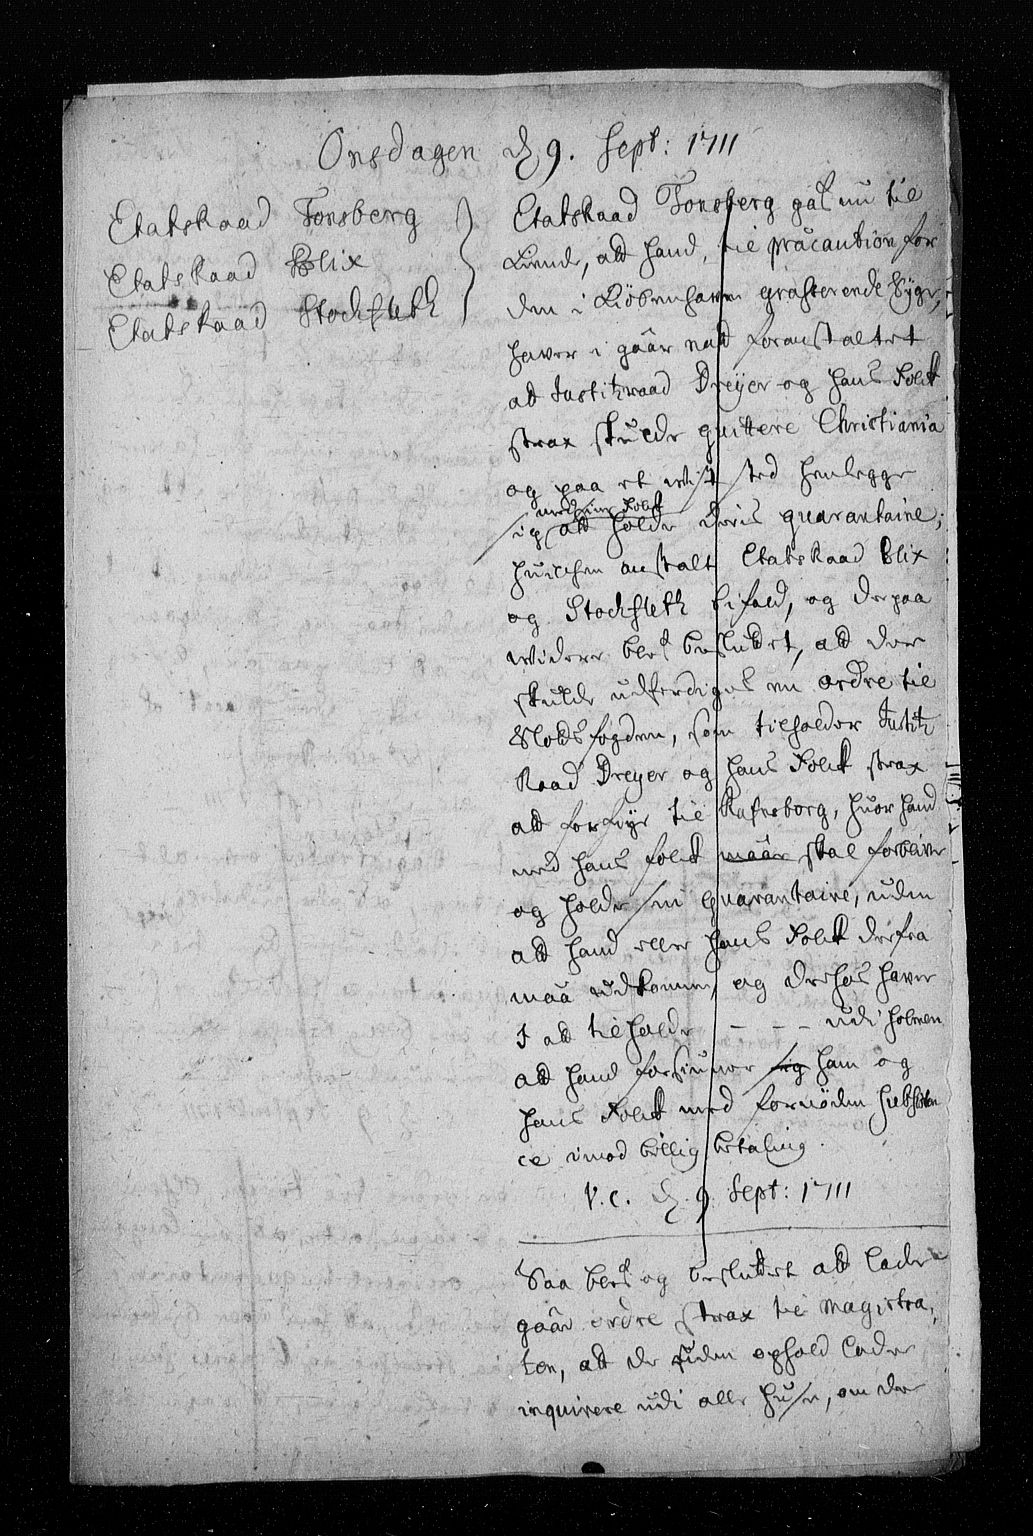 Onsdagen d 9. Sept: 1711
Etatskaad Tonsberg
Etatskaad Blix
Etatskaad Stochfleth
Etatskaad Tonsberg gaf nu til
kiende, att hand, til præcaution for
den i Kiøbenhavn grasserende Syge,
hafver i gaar natt foranstaltet
att Justitzraad Dreÿer og hans Folck
strax skulde quittere Christiania
og paa et wist sted henlegge
med sine Folck
sig att holde deris quarantaine;
huilchen anstalt Etatskaad Blix
og Stochfleth bifald, og derpaa
widere blef besluttet, att der
skulde udferdiges en ordre til
Slodsfogden, som tilholder Justitz
Raad Dreyer og hans Folck strax
att forføye til Rafnsborg, huor hand
med hans folck maar skal forblive
og holde sin quarantaine, uden
att hand eller hans Folck derfra
maa udkomme, og derhos haver
I att tilholde - - - udi holmen
att hand forsiuner sig ham og
hans Folck med fornøden
imod billig betaling.
V. c. d 9 Sept: 1711
Saa blef og besluttet att lade
gaae ordre strax til Magistra,
ten, att de uden ophold lader
inquirere udi alle huse, om der